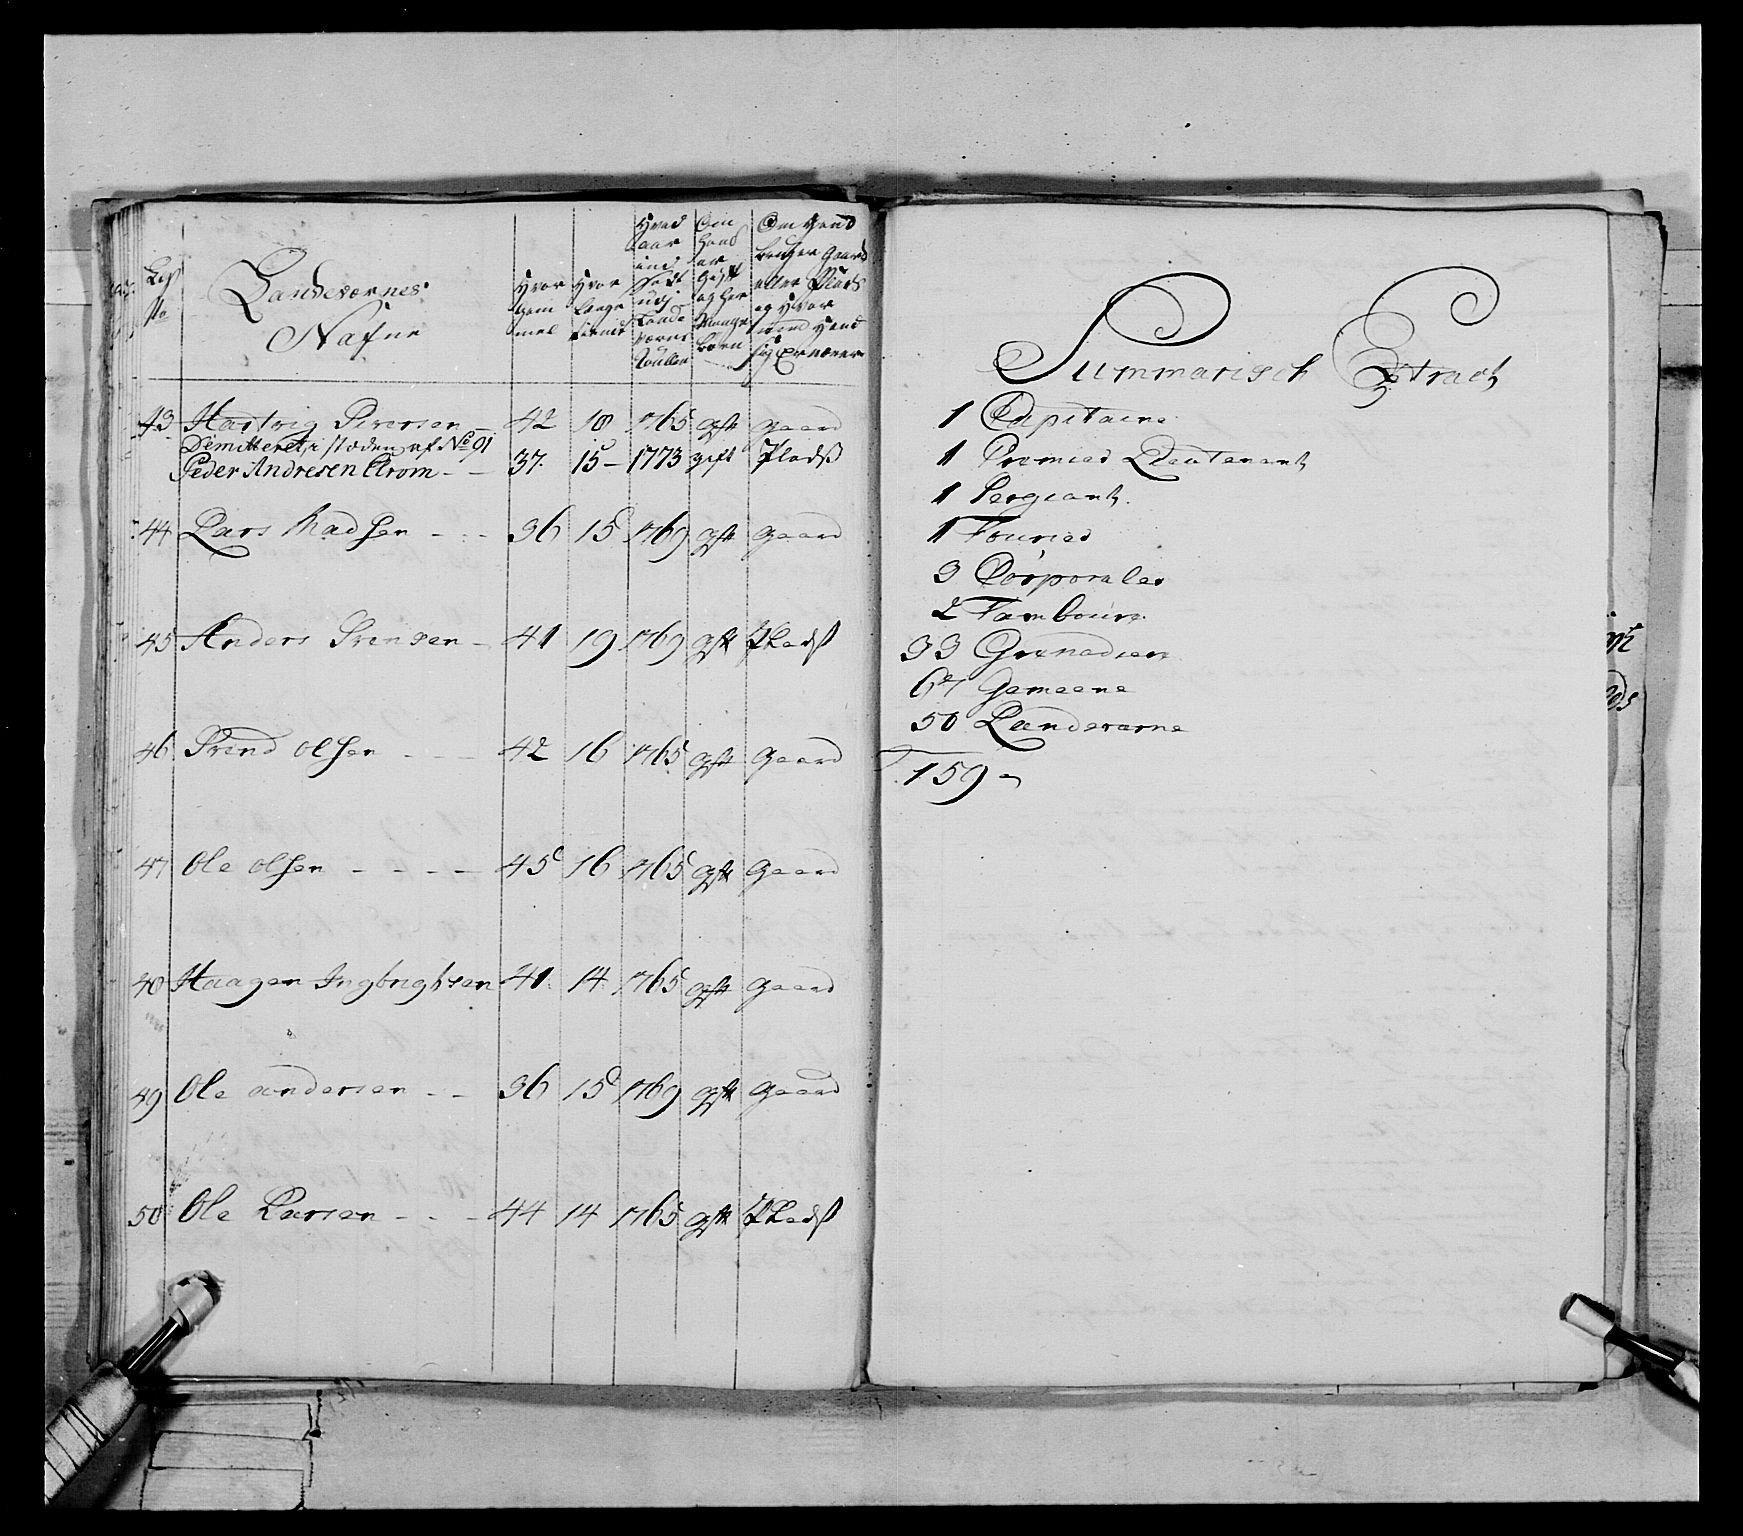 Landeværnes
Nafne
Hvor
gam
mel
Hvor
længe
tient
Hvad
aar
ind
sadt
udj
Lande
værns
Roullen
Om
hand
er
gift
og hvor
Mange
børn
Om hand
bruger gaard
eller Plads
og hvor
med hand
sig Ernærer
43 Hartvig Siversen 42 18 1765 gift gaard
Dimitteret, i stæden af No 91
Peder Andresen Strøm 37. 15 - 1773 gift Pladß
44 Lars Madsen - - - 36 15 1769 gift gaard
45 Anders Svensen - 41 19 1769 gift Pladß
46 Svend Olsen - - - 42 16 1765 gift gaard
47 Ole Olsen - - - - 45 16 1765 gift gaard
48 Haagen Ingbrigtsen 41 14 1765 gift gaard
49 Ole andersen - - 36 15 1769 gift gaard
50 Ole Larsen - - - 44 14 1765 gift Pladß
Summarisch Extract
1 Capitaine
1 Premier Lieutenant
1 Sergeant.
1 Fourier
3 Corporaler
2 Tambours
33 Granadiers
67 Gemeene
50 Landeværne
159